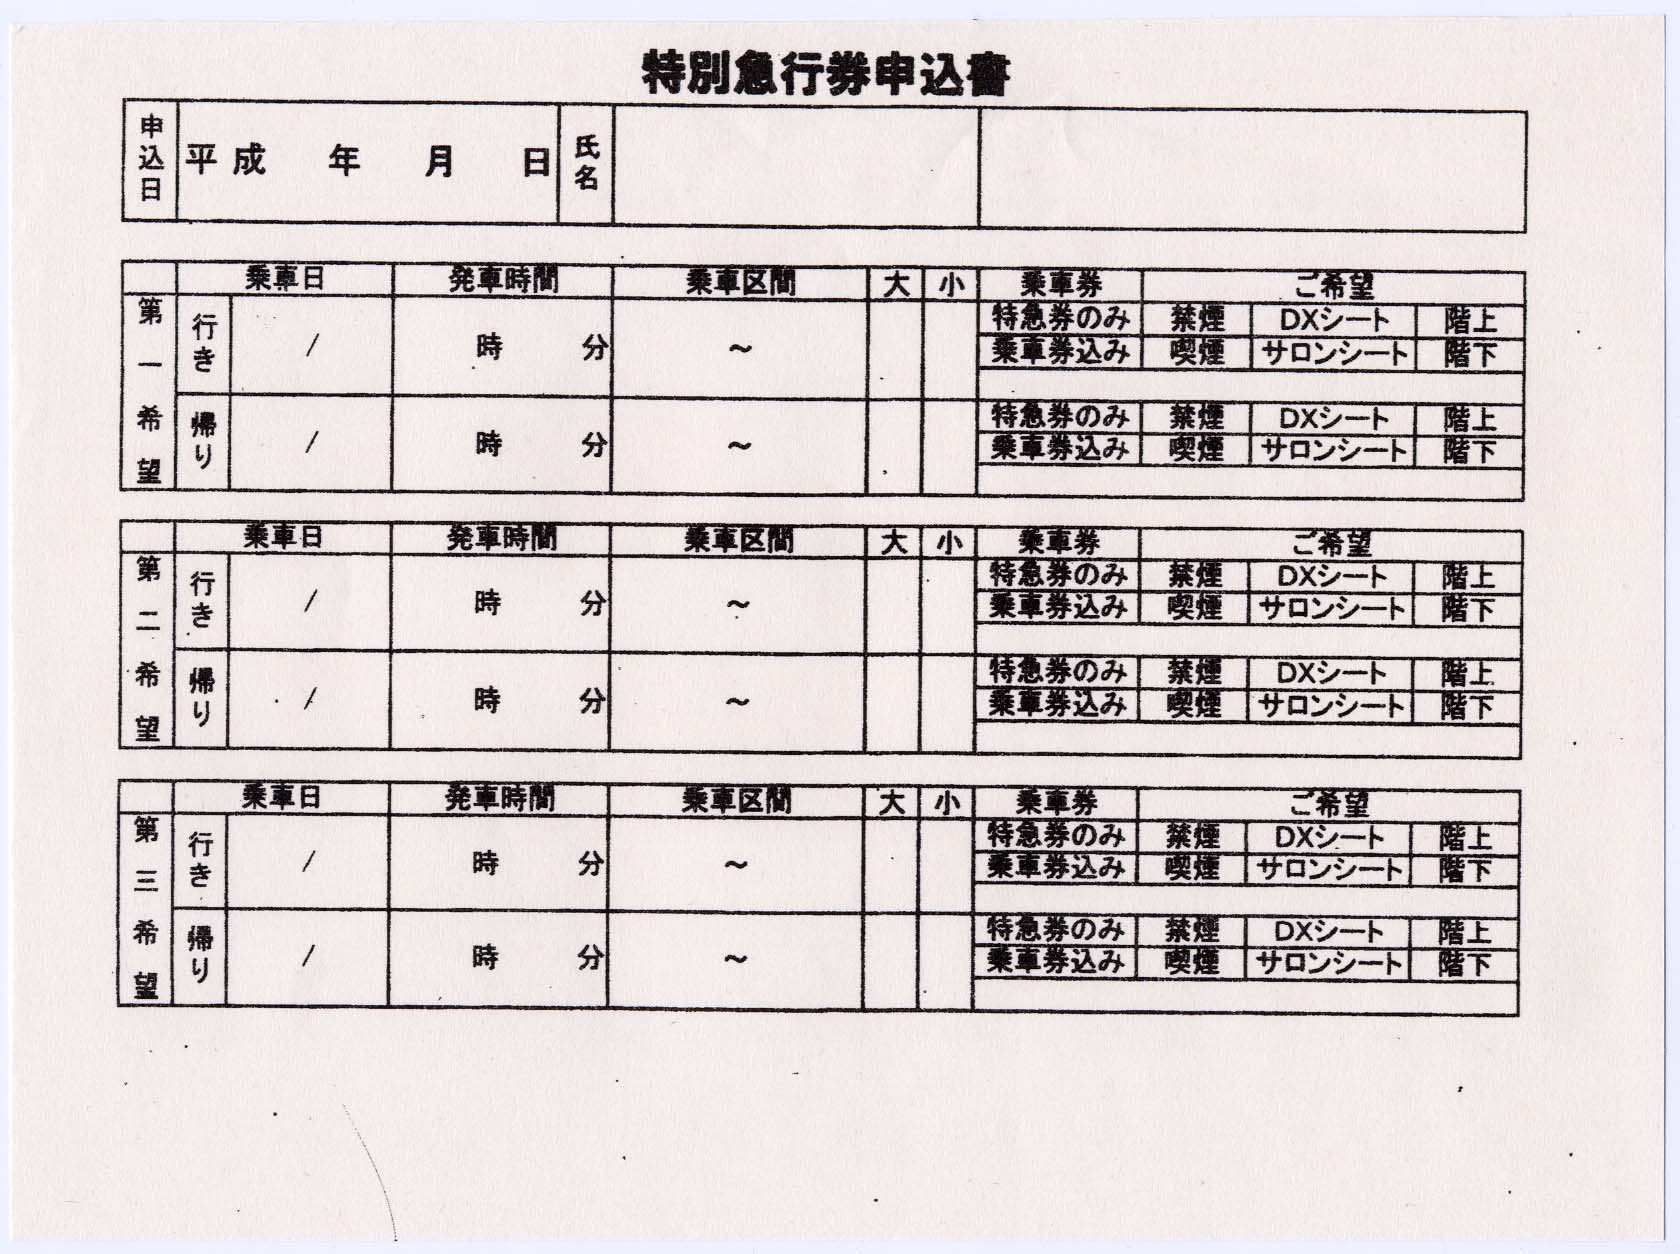 特別急行券申込書
申込日 平成 年 月 日 氏名
乗車日 発車時間 乗車区間 大 小 乗車券 ご希望
第一希望
行き / 時 分 ~ 特急券のみ 禁煙 DXシート 階上
乗車券込み 喫煙 サロンシート 階下
帰り / 時 分 ~ 特急券のみ 禁煙 DXシート 階上
乗車券込み 喫煙 サロンシート 階下
乗車日 発車時間 乗車区間 大 小 乗車券 ご希望
第二希望
行き / 時 分 ~ 特急券のみ 禁煙 DXシート 階上
乗車券込み 喫煙 サロンシート 階下
帰り / 時 分 ~ 特急券のみ 禁煙 DXシート 階上
乗車券込み 喫煙 サロンシート 階下
乗車日 発車時間 乗車区間 大 小 乗車券 ご希望
第三希望
行き / 時 分 ~ 特急券のみ 禁煙 DXシート 階上
乗車券込み 喫煙 サロンシート 階下
帰り / 時 分 ~ 特急券のみ 禁煙 DXシート 階上
乗車券込み 喫煙 サロンシート 階下